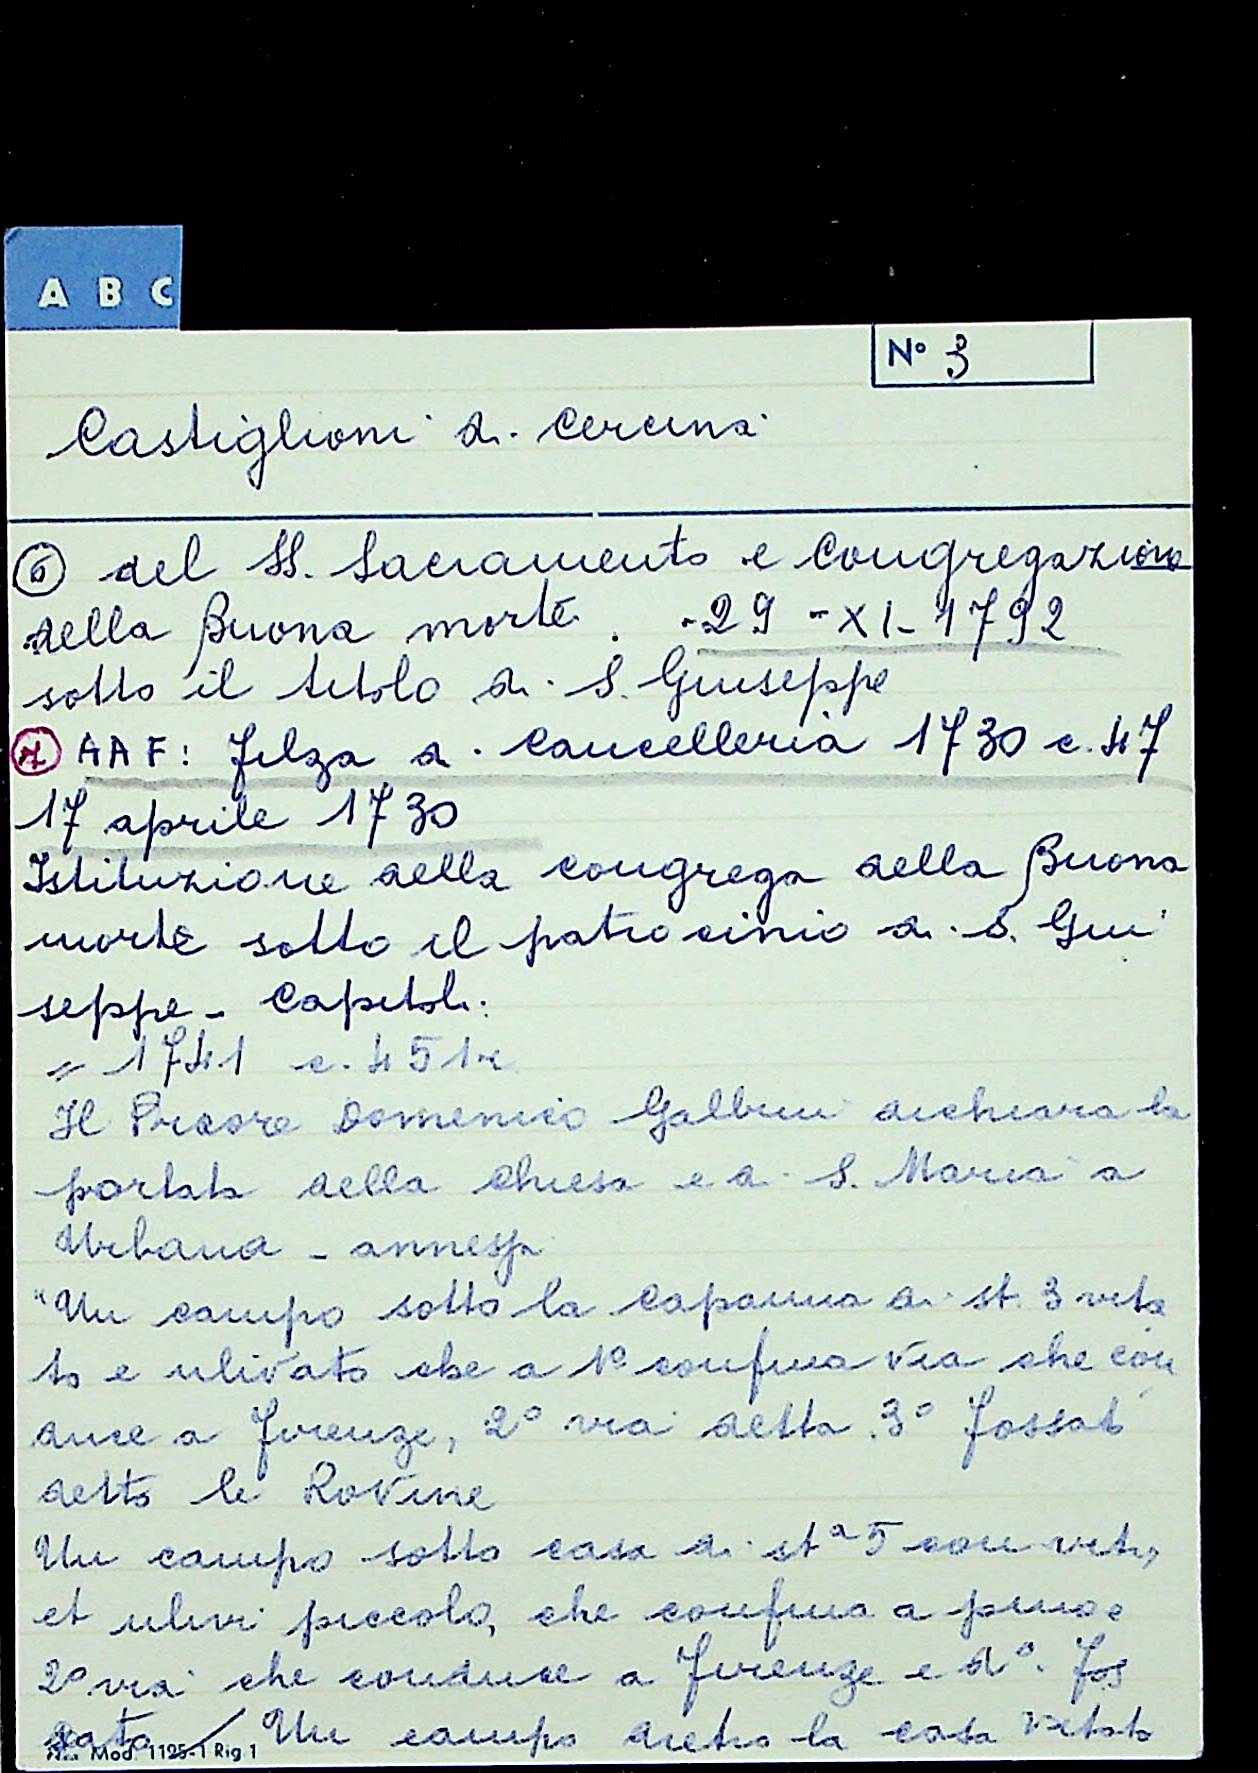 A B C
N° 3
Castiglioni di Cercina
6 del SS. Sacramento e Congregazione
della Buona morte. - 29 - XI - 1792
sotto il titolo di S. Giuseppe
7 AAF: Filza di Cancelleria 1730 c. 47
17 aprile 1730
Istituzione della congrega della Buona
morte sotto il patrocinio di S. Giu
seppe - Capitoli:
= 1741 c. 451r
Il Priore Domenico Galbini dichiara la
portata della chiesa e di S. Maria a
Urbana - annessa
"Un campo sotto la capanna di st. 3 vita
to e ulivato che a 1° confina via che con
duce a Firenze, 2° via detta 3° fossato
detto le Rovine
Un campo sotto casa di st a 5 con viti,
et ulivi piccolo, che confina a primo e
2° via che conduce a Firenze e d°. Fos
sato / Un campo dietro la casa vitato
Mod 1125-1 Rig 1